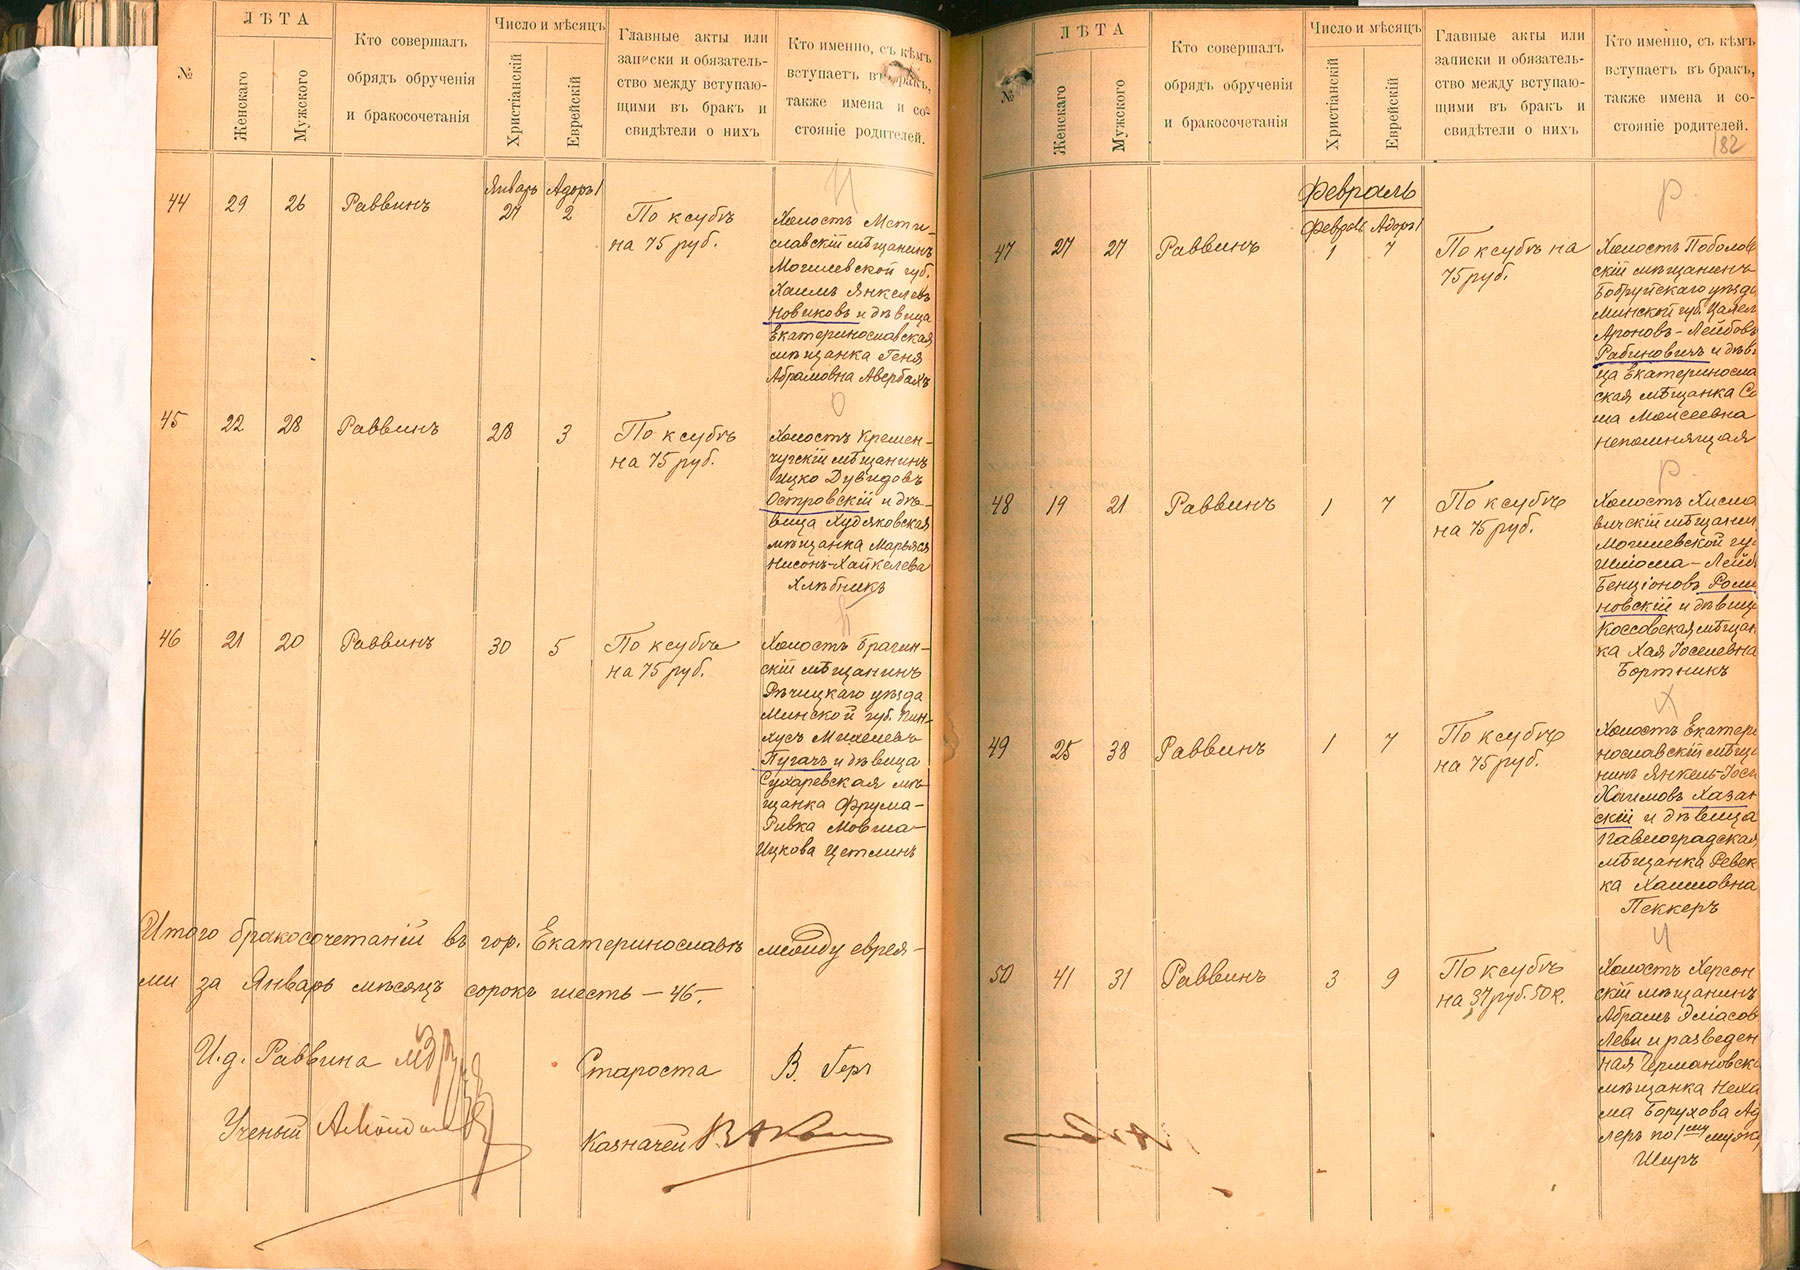 №
ЛѢТА
Женскаго
Мужского
Кто совершалъ
обрядъ обрученія
и бракосочетанія
Число и мѣсяцъ
Христіанскій
Еврейскій
Главные акты или
записки и обязатель-
ство между вступаю-
щими въ бракъ и
свидѣтели о нихъ
Кто именно, съ кѣмъ
вступаетъ въ бракъ,
также имена и со-
стояніе родителей.
Н
44 29 26 Раввинъ
Январь 27
Адоръ I 2
По ксубѣ
на 75 руб.
Холостъ Мсти-
славскій мѣщанинъ
Могилевской губ.
Хаимъ Янкелевъ
Новиковъ и дѣвица
Екатеринославская
мѣщанка Геня
Абрамовна Авербахъ
О
45 22 28 Раввинъ 28 3
По ксубѣ
на 75 руб.
Холостъ Кремен-
чугскій мѣщанинъ
Ицко Дувидовъ
Островскій и дѣ-
вица Худяковская
мѣщанка Марьяся
Нисонъ-Хайкелева
Хлѣбникъ
46 21 20 Раввинъ 30 5
По ксубѣ
на 75 руб.
Холостъ Брагин-
скій мѣщанинъ
Рѣчицкаго уѣзда
Минской губ. Пин-
хусъ Михелевъ
Пугачъ и дѣвица
Сухаревская мѣ-
щанка Фрума-
Ривка Мовша-
Ицкова Цетлинъ
Итого бракосочетаній въ гор. Екатеринославѣ между еврея-
ми за Январь мѣсяцъ сорокъ шесть – 46 –
И.д. Раввина
Староста В. Гер
Ученый
Казначей
№
ЛѢТА
Женскаго
Мужского
Кто совершалъ
обрядъ обрученія
и бракосочетанія
Число и мѣсяцъ
Христіанскій
Еврейскій
Главные акты или
записки и обязатель-
ство между вступаю-
щими въ бракъ и
свидѣтели о нихъ
Кто именно, съ кѣмъ
вступаетъ въ бракъ,
также имена и со-
стояніе родителей.
182
Февраль
Р
47 27 27 Раввинъ
Февраль 1
Адоръ I 7
По ксубѣ на
75 руб.
Холостъ Поболов
скій мѣщанинъ
Бобруйскаго уѣзда
Минской губ.
Ароновъ-Лейбовъ
Рабиновичъ и дѣви
ца Екатериносла
ская мѣщанка Со
ша Моисеевна
Непомнящая
Р
48 19 21 Раввинъ 1 7
По ксубѣ
на 75 руб.
Холостъ Хисла
вичскій мѣщанин
Могилевской гу
Шлиома-Лейб
Бенціоновъ Роми
новскій и дѣвица
Коссовская мѣщан
ка Хая Іоселевна
Бортникъ
Х
49 25 38 Раввинъ 1 7
По ксубѣ
на 75 руб.
Холостъ Екатери
нославскій мѣща
нинъ Янкель-Іос
Хаимовъ Хазан
скій и дѣвица
Павлоградская
мѣщанка Ревек
ка Хаимовна
Пеккеръ
50 41 31 Раввинъ 3 9
По ксубѣ
на 37 руб. 50 к.
Холостъ Херсон
скій мѣщанинъ
Абрамъ Элиасов
Леви и разведен
ная Германовска
мѣщанка Неха
ма Борухова Ад
леръ по 1му мужу
Ширъ